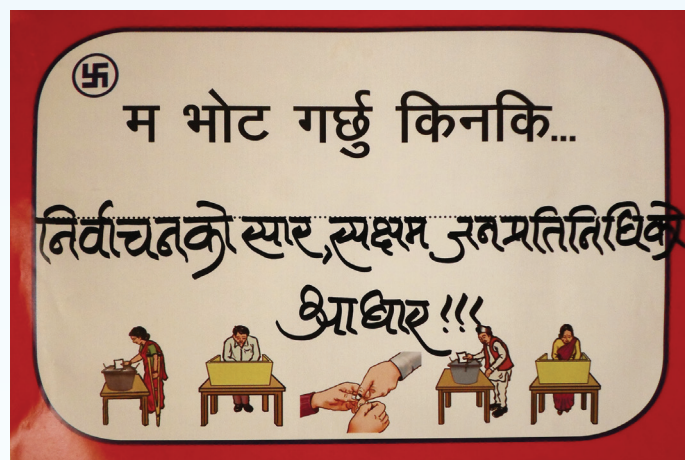 म भोट गर्छु किनकि...
निर्वाचनको सार, सक्षम जनप्रतिनिधिको
आधार!!!